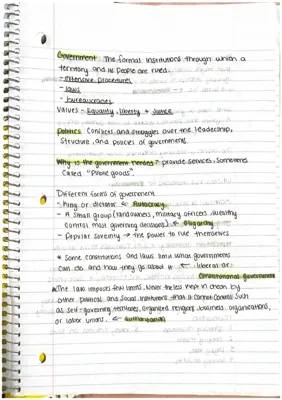 Government: The formal institutions through which a
territory and its people are ruled.
- Intensive procedures
- laws
- bureaucracies
Values - Equality, liberty + Justice
Politics: Conflicts and struggles over the leadership,
Structure, and policies of government.
Why is the government needed? provide services, Sometimes
Called "Public goods".
* Different forms of government
- King or dictator ← Autocracy
- A small group (landowners, military officers, wealthy
control most governing decisions) ← Oligarchy
- Popular Sovereignty → the power to rule themselves
* Some constitutions and laws limit what governments
can do and how they go about it ← liberal or
Constitutional government
* The law imposes few limits. Never the less kept in check by
other political and social institutions that it cannot control such
as self-governing territories, organized religions, business organizations,
or labor unions. ← Authoritarian